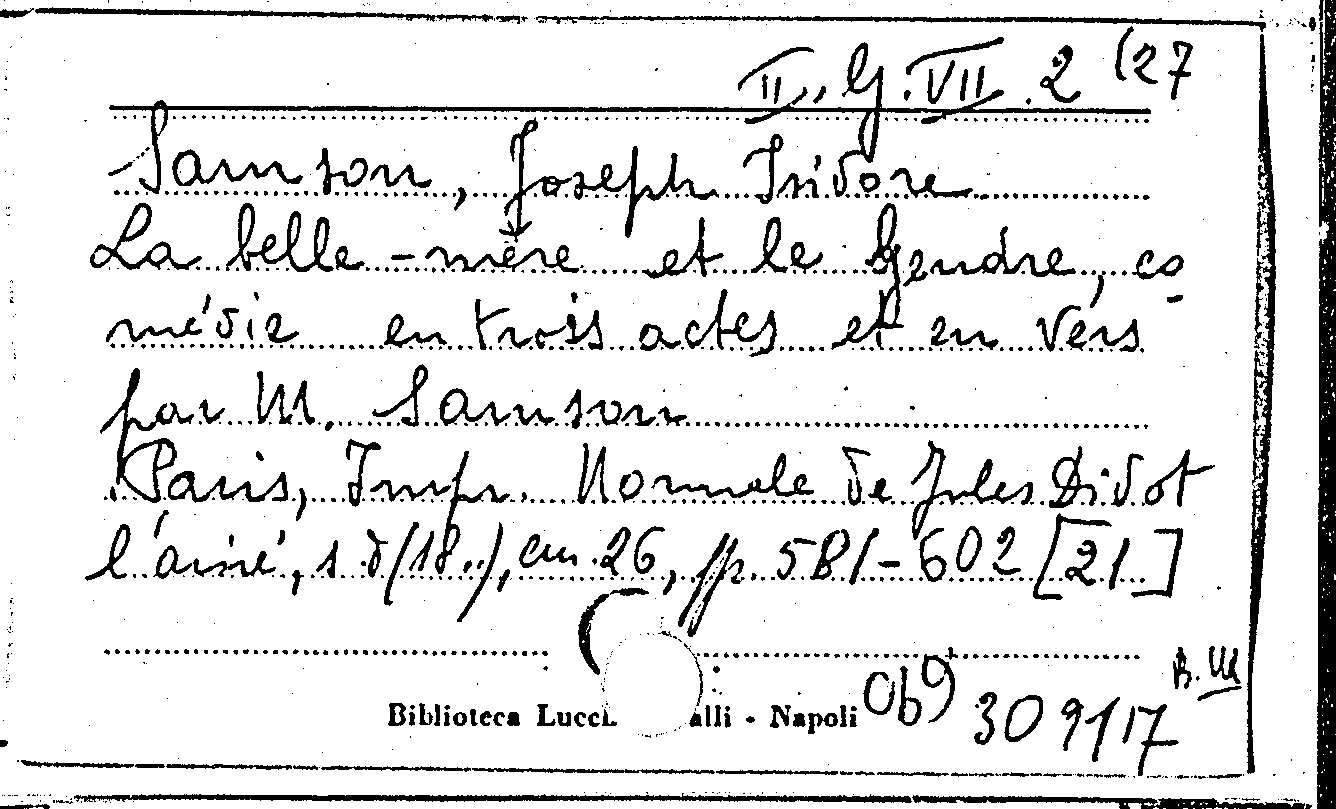 II. G. VII. 2 (27
Samson, Joseph Isidore
La belle-mère et le Gendre, co
médie en trois actes et en vers
par M. Samson
Paris, Impr. Normale de Jules Didot
l'ainé, s.d(18..), cm. 26, pp. 581-602 [21]
B. M
Biblioteca Lucch alli - Napoli
309117